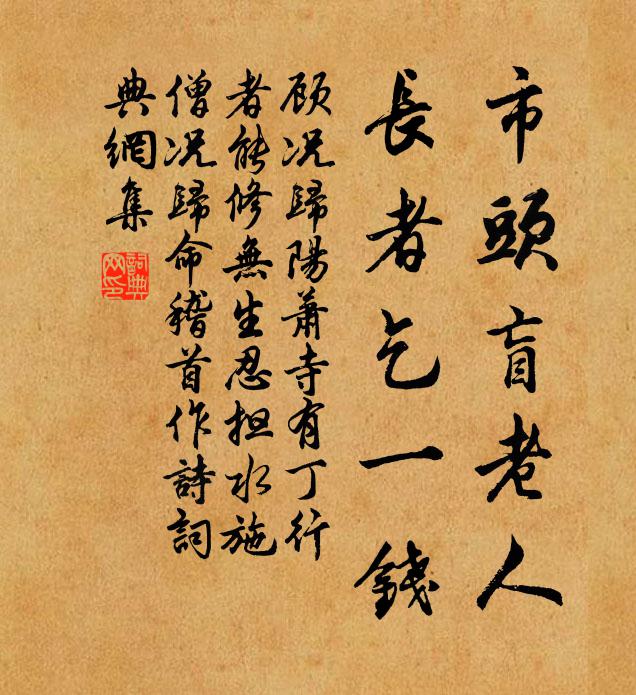 市頭盲老人
長者乞一錢
顾况歸陽蕭寺有丁行
者能修無生忍担水施
僧况歸命稽首作詩詞
典網集
詞典网印